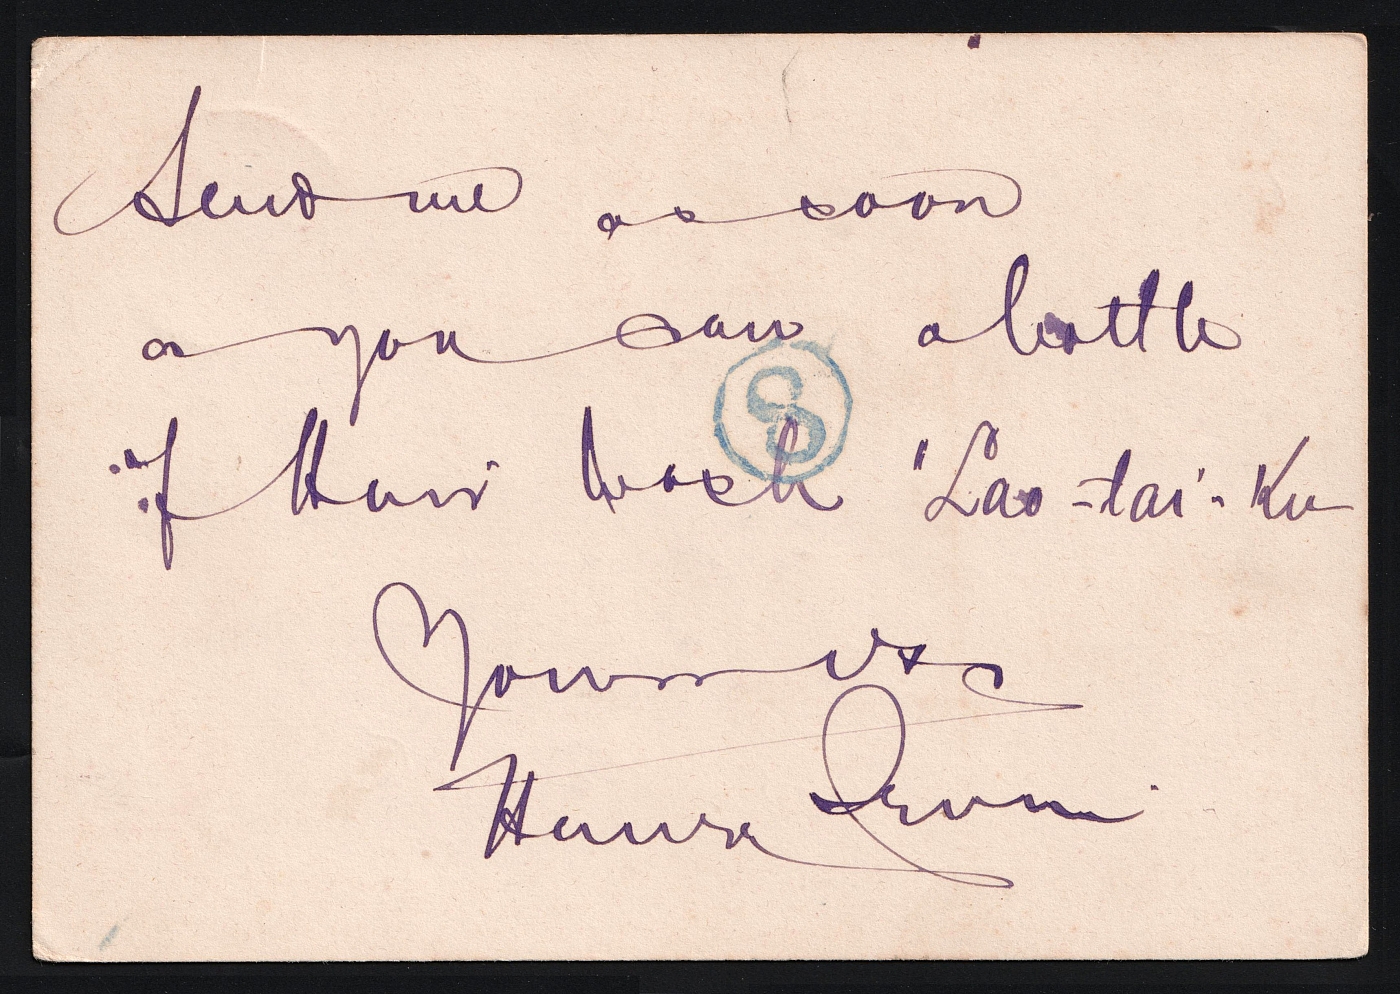 Send me as soon
as you can a bottle
of Hair Wash "Lao-tai'-Ku
8
Yours